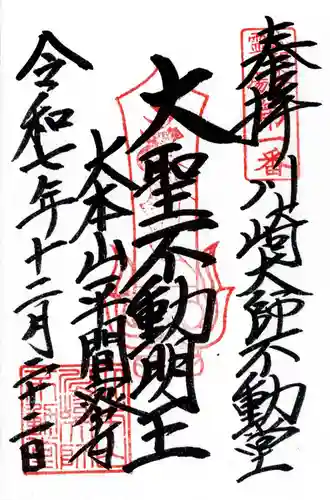 奉拝 川崎大師不動堂
大聖不動明王
大本山平間寺
令和七年十二月二十二日